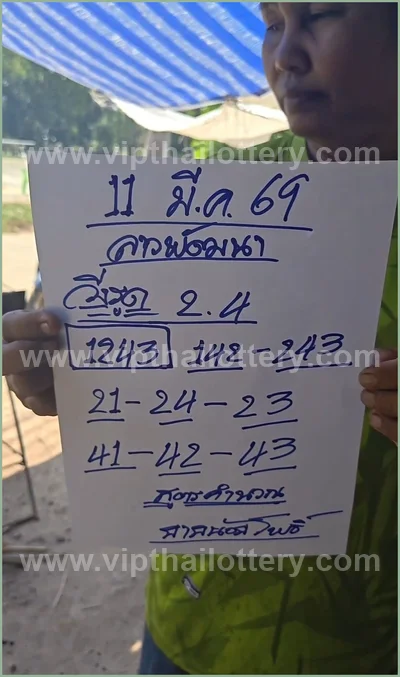 www.vipthailottery.com
11 มี.ค. 69
ลาวพัฒนา
วิ่งรูด 2.4
1243 142-243
www.vipthailottery.com
21-24-23
41-42-43
สูตรคำนวณ
www.vipthailottery.com